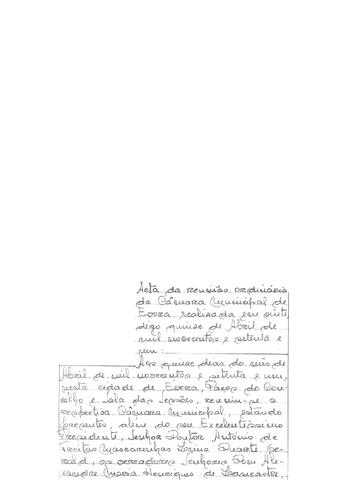 Acta da reunião ordinária
da Câmara Municipal de
Évora realizada em
quinze de Abril de
mil novecentos e setenta e
um:
Aos quinze dias do mês de
Abril de mil novecentos e setenta e um,
nesta cidade de Évora, Paços do Con-
celho e Sala das Sessões, reuniu-se a
respectiva Câmara Municipal, estando
presentes, além do seu Excelentíssimo
Presidente, Senhor Doutor António de
Freitas Mascarenhas
os vereadores Senhores Dom Ale-
xandre Maria Henriques de Lancastre,